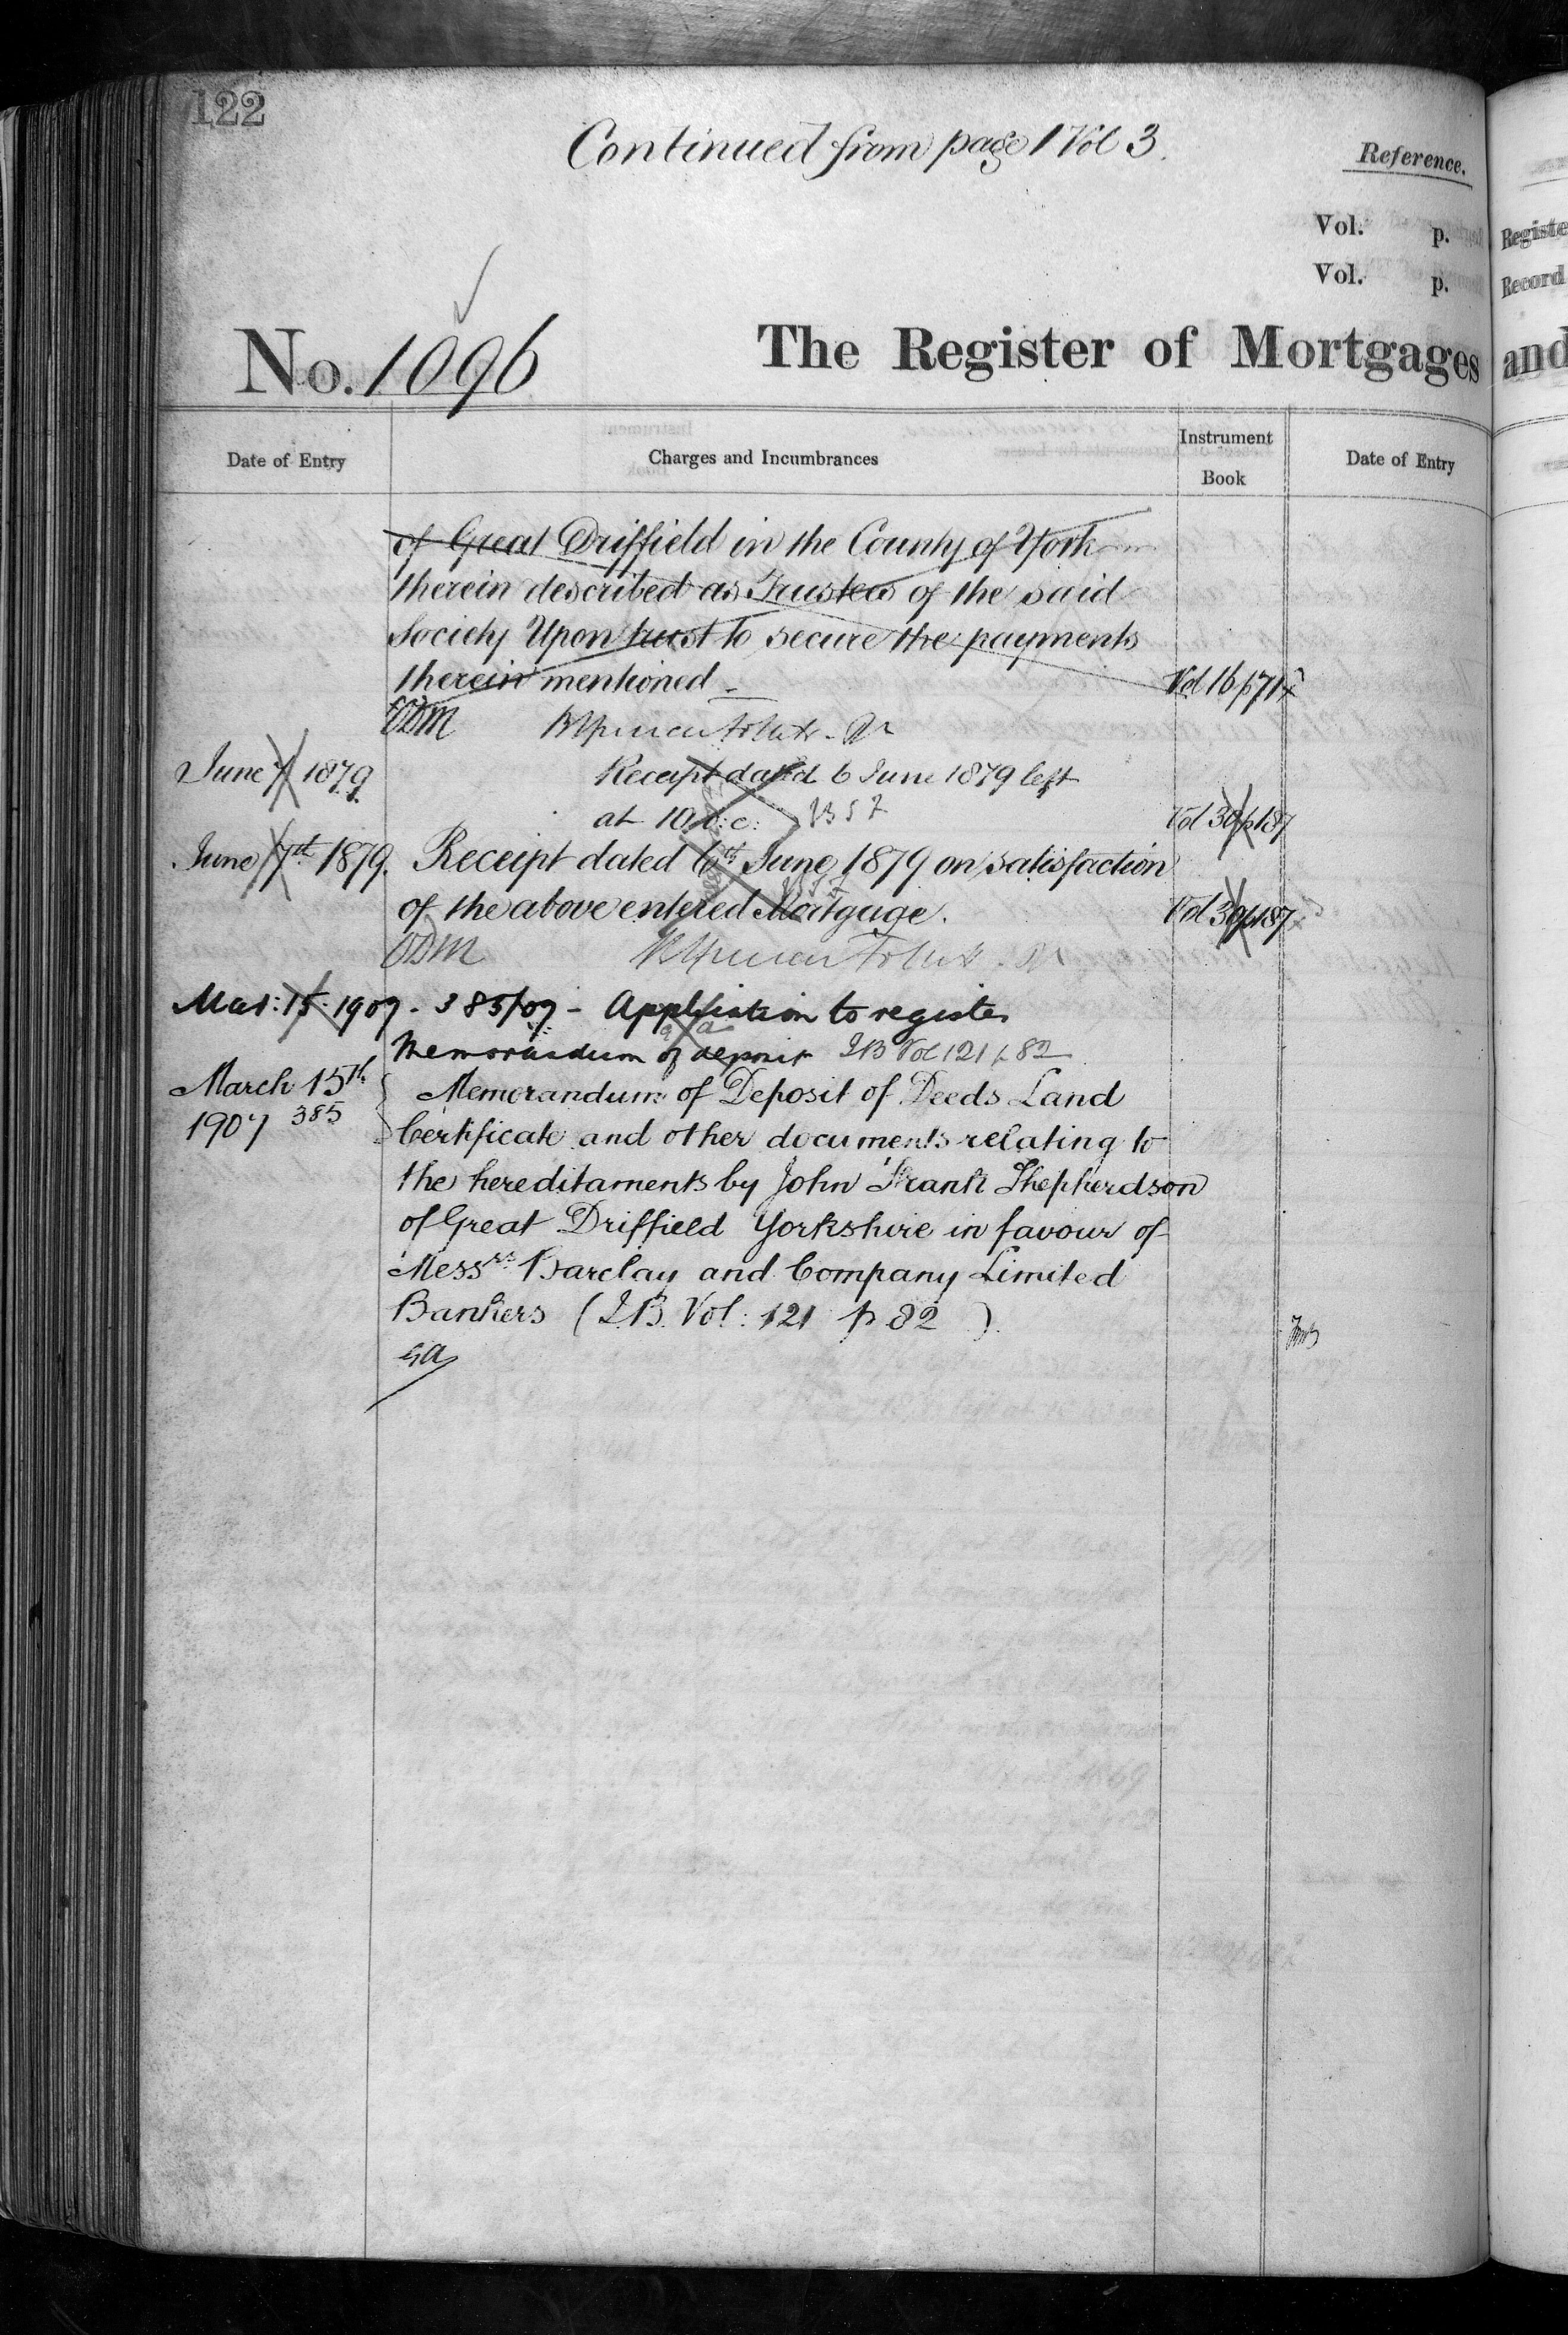 122
Continued from page 1 Vol 3.
Reference.
Vol. p.
Vol. p.
No. 1096
The Register of Mortgages
Registe
Record
and
Date of Entry
Charges and Incumbrances
Instrument
Book
Date of Entry
of Great Driffield in the County of York
therein described as Trustees of the said
Society Upon trust to secure the payments
therein mentioned
Vol 16 p 71
ODM
June 7 1879
Receipt dated 6 June 1879 left
at 10 o:c:
Vol 30 p 187
June 7th 1879. Receipt dated 6th June 1879 on satisfaction
of the above entered Mortgage.
Vol 30 p 187
ODM
Mar: 15. 1907 - 385/07 - Application to register
Memorandum of deposit IB Vol 121 p 82
March 15th
1907 385
Memorandum of Deposit of Deeds Land
Certificate and other documents relating to
the hereditaments by John Frank Shepherdson
of Great Driffield Yorkshire in favour of
Messrs Barclay and Company Limited
Bankers (I.B. Vol: 121 p 82 ).